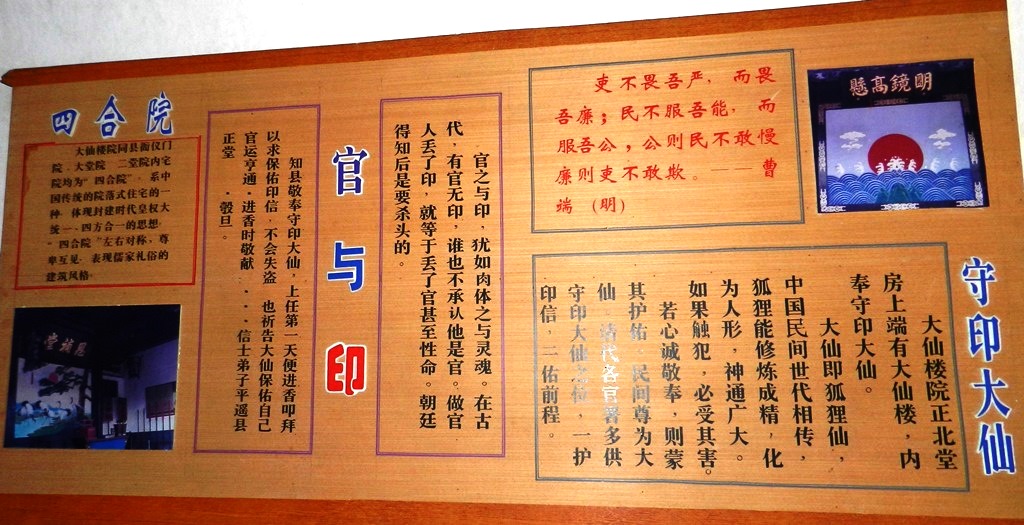 明鏡高懸
吏不畏吾严，而畏
吾廉；民不服吾能，而
服吾公；公则民不敢慢
廉则吏不敢欺。——曹
端（明）
守印大仙
大仙楼院正北堂
房上端有大仙楼，内
奉守印大仙。
大仙即狐狸仙，
中国民间世代相传，
狐狸能修炼成精，化
为人形，神通广大。
如果触犯，必受其害。
若心诚敬奉，则蒙
其护佑，民间尊为大
仙，清代各官署多供
守印大仙之位，一护
印信，二佑前程。
官与印
官之与印，犹如肉体之与灵魂。在古
代，有官无印，谁也不承认他是官。做官
人丢了印，就等于丢了官甚至性命。朝廷
得知后是要杀头的。
知县敬奉守印大仙，上任第一天便进香叩拜
以求保佑印信，不会失盗，也祈告大仙保佑自己
官运亨通，进香时敬献、、、信士弟子平遥县
正堂、彀旦。
四合院
大仙楼院同县衙仪门
院、大堂院、二堂院内宅
院均为“四合院”，系中
国传统的院落式住宅的一
种，体现封建时代皇权大
统一、四方合一的思想。
“四合院”左右对称，尊
卑互见，表现儒家礼俗的
建筑风格。